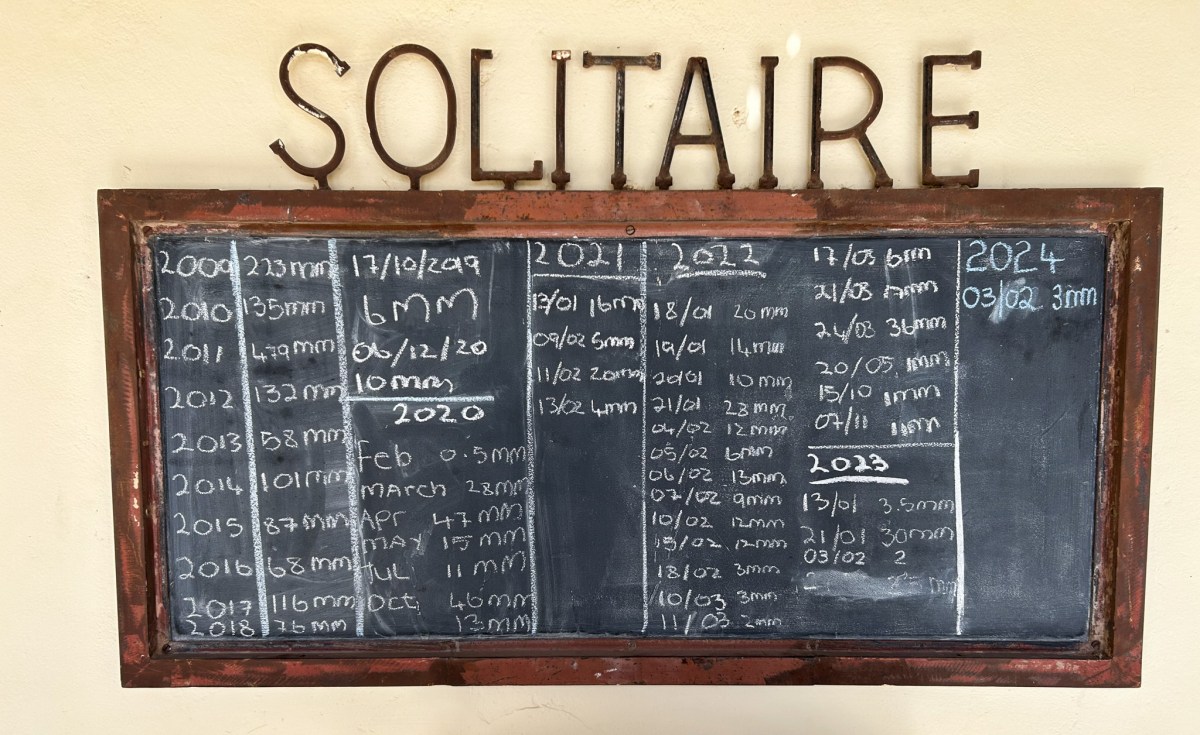 SOLITAIRE
2009 223mm
2010 135mm
2011 479mm
2012 132mm
2013 58mm
2014 101mm
2015 87mm
2016 68mm
2017 116mm
2018 76mm
17/10/2019
6mm
06/12/20
10mm
2020
Feb 0.5mm
March 28mm
Apr 47mm
May 15mm
Jul 11mm
Oct 46mm
13mm
2021
13/01 16mm
09/02 5mm
11/02 20mm
13/02 4mm
2022
18/01 20mm
19/01 14mm
20/01 10mm
21/01 28mm
04/02 12mm
05/02 6mm
06/02 13mm
07/02 9mm
10/02 12mm
15/02 12mm
18/02 3mm
10/03 3mm
11/03 2mm
17/03 6mm
21/03
24/03 36mm
20/05 1mm
15/10 1mm
07/11 11mm
2023
13/01 3.5mm
21/01 30mm
03/02 2
mm
2024
03/02 3mm